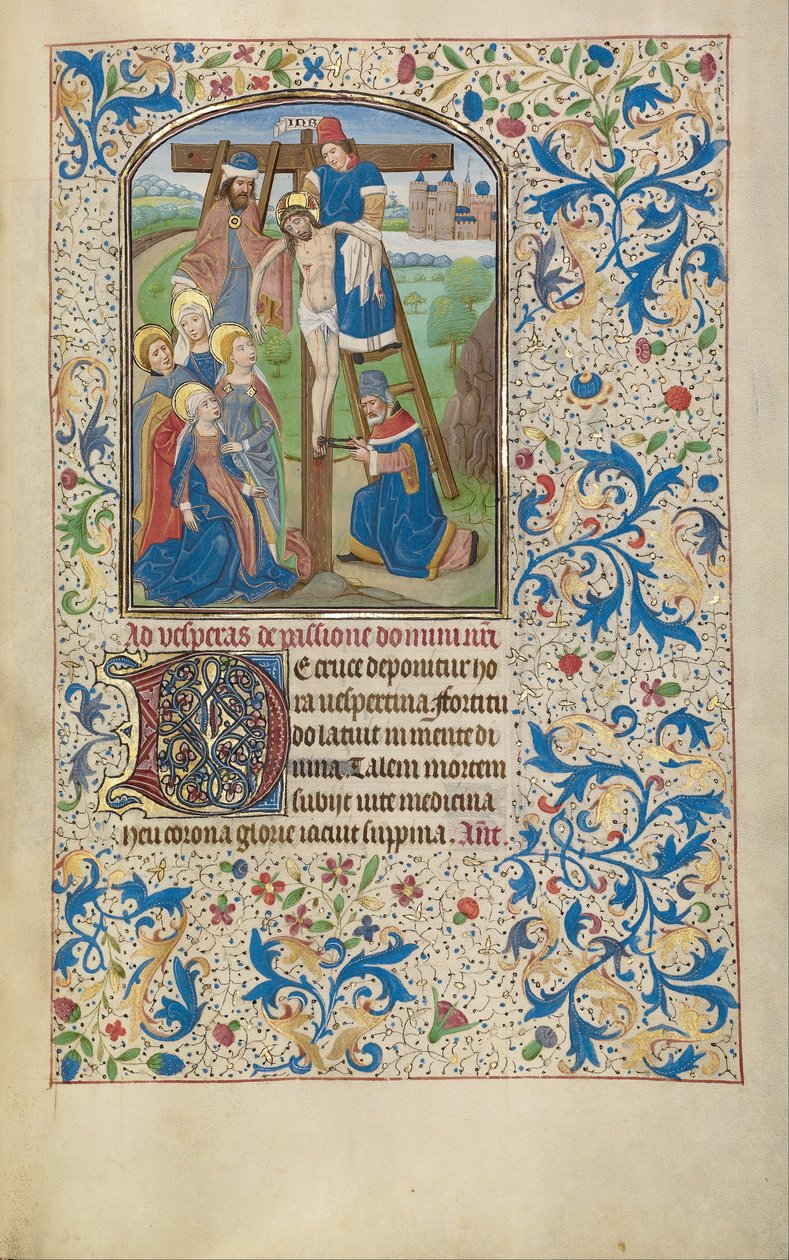 INB
Ad vesperas de passione domini nr̄i
De cruce deponitur ho
ra uespertina. ffortitu
do latuit in mente di
uina Talem mortem
subijt uite medicina
heu corona glorie iacuit suppina. An̄t